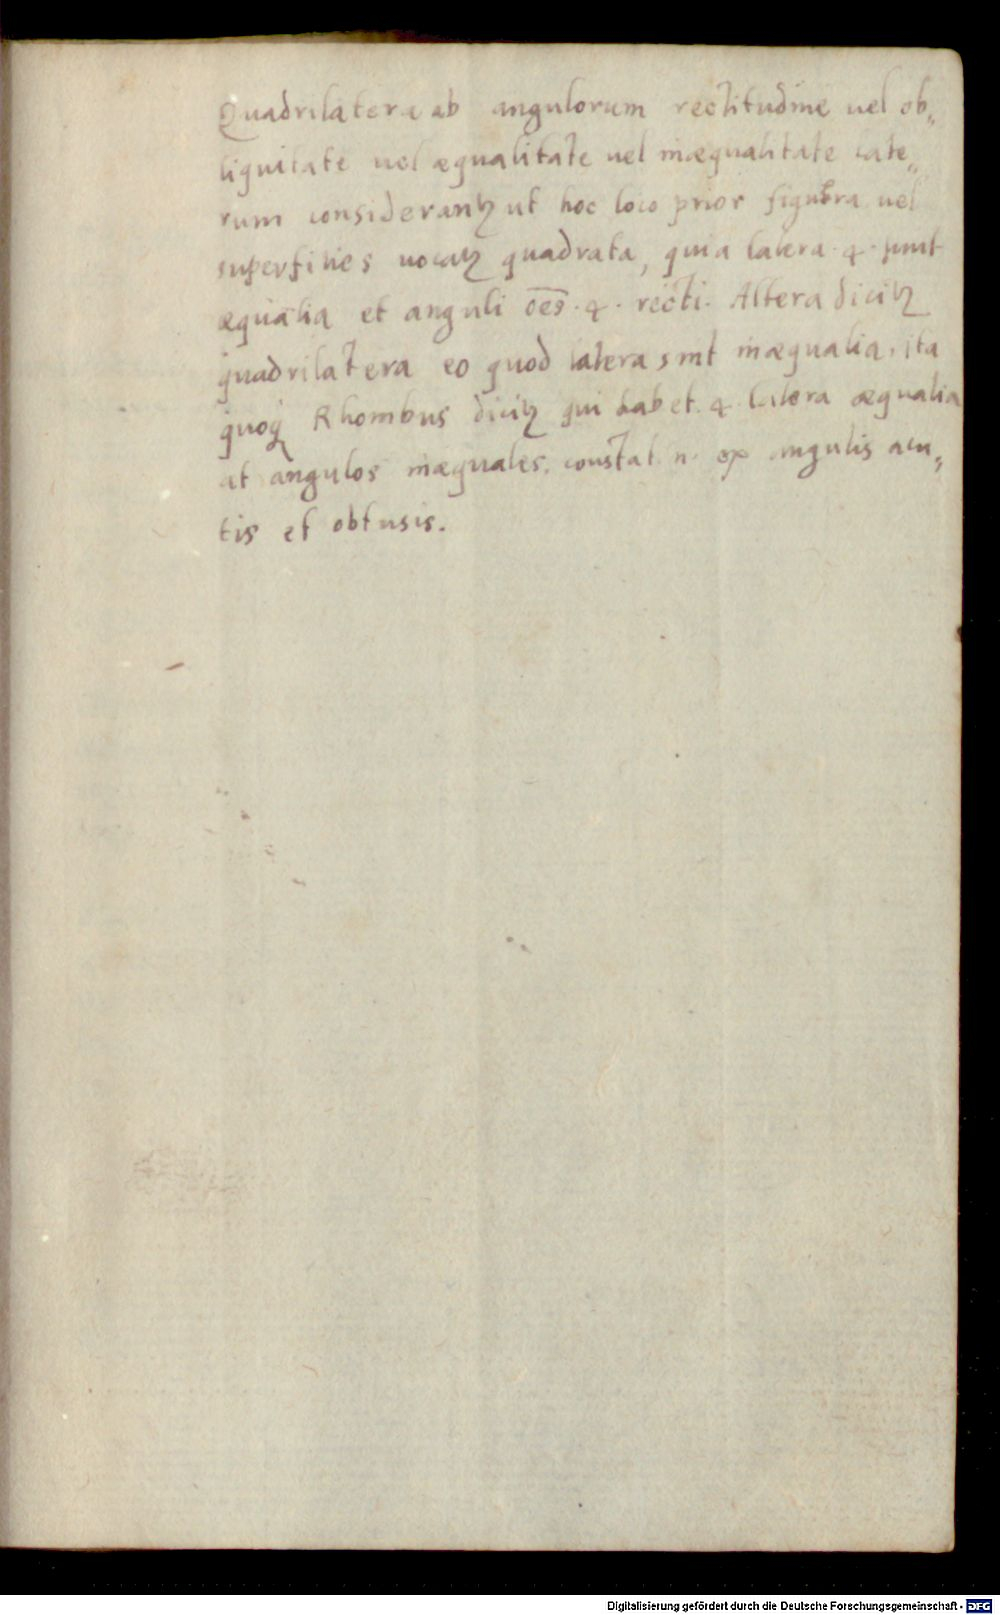 Quadrilatera ab angulorum rectitudine uel ob„
liquitate uel æqualitate uel inæqualitate late„
rum considerantꝫ ut hoc loco prior figura uel
superfities uocatꝫ quadrata, quia latera ·4· sunt
æqualia et anguli o͞es ·4· recti. Altera dicitꝫ
quadrilatera eo quod latera sint inæqualia, ita
quoqꝫ Rhombus dicitꝫ qui habet ·4· latera æqualia
at angulos inæquales, constat n. ex angulis acu„
tis et obtusis.
Digitalisierung gefördert durch die Deutsche Forschungsgemeinschaft - DFG